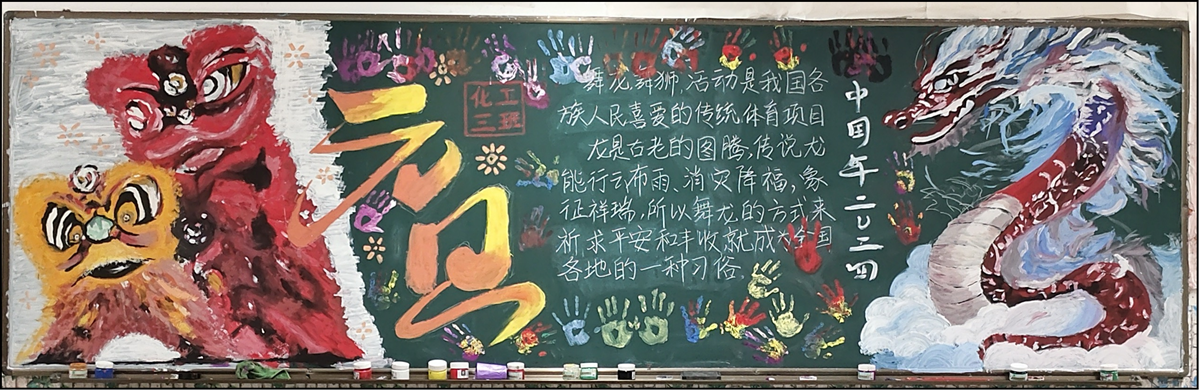 元旦
化工
三班
舞龙,舞狮,活动是我国各
族人民喜爱的传统体育项目
龙是古老的图腾,传说龙
能行云布雨、消灾降福,象
征祥瑞,所以舞龙的方式来
祈求平安和丰收就成为全国
各地的一种习俗.
中国年二〇二四